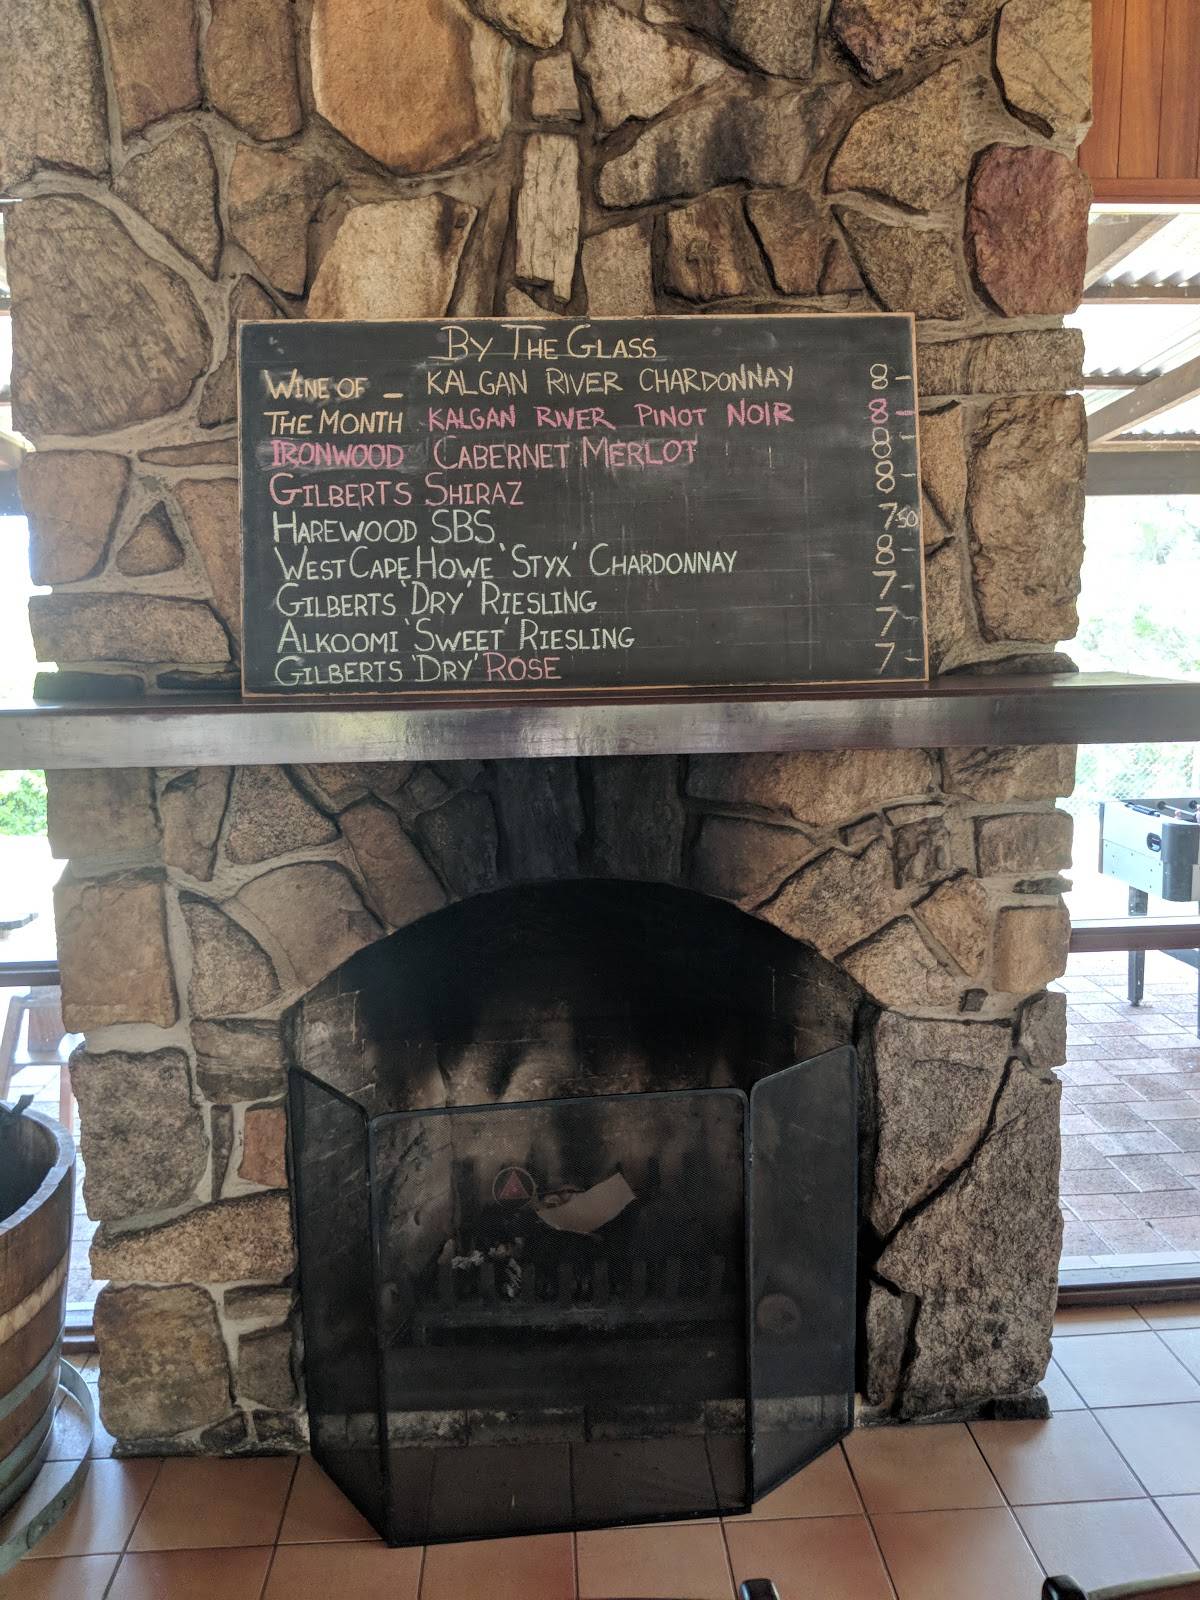 BY THE GLASS
WINE OF - KALGAN RIVER CHARDONNAY 8-
THE MONTH KALGAN RIVER PINOT NOIR 8-
IRONWOOD CABERNET MERLOT 8
GILBERTS SHIRAZ 8-
HAREWOOD SBS 7.50
WEST CAPE HOWE 'STYX' CHARDONNAY 8-
GILBERTS 'DRY' RIESLING 7-
ALKOOMI 'SWEET' RIESLING 7-
GILBERTS 'DRY' ROSE 7-